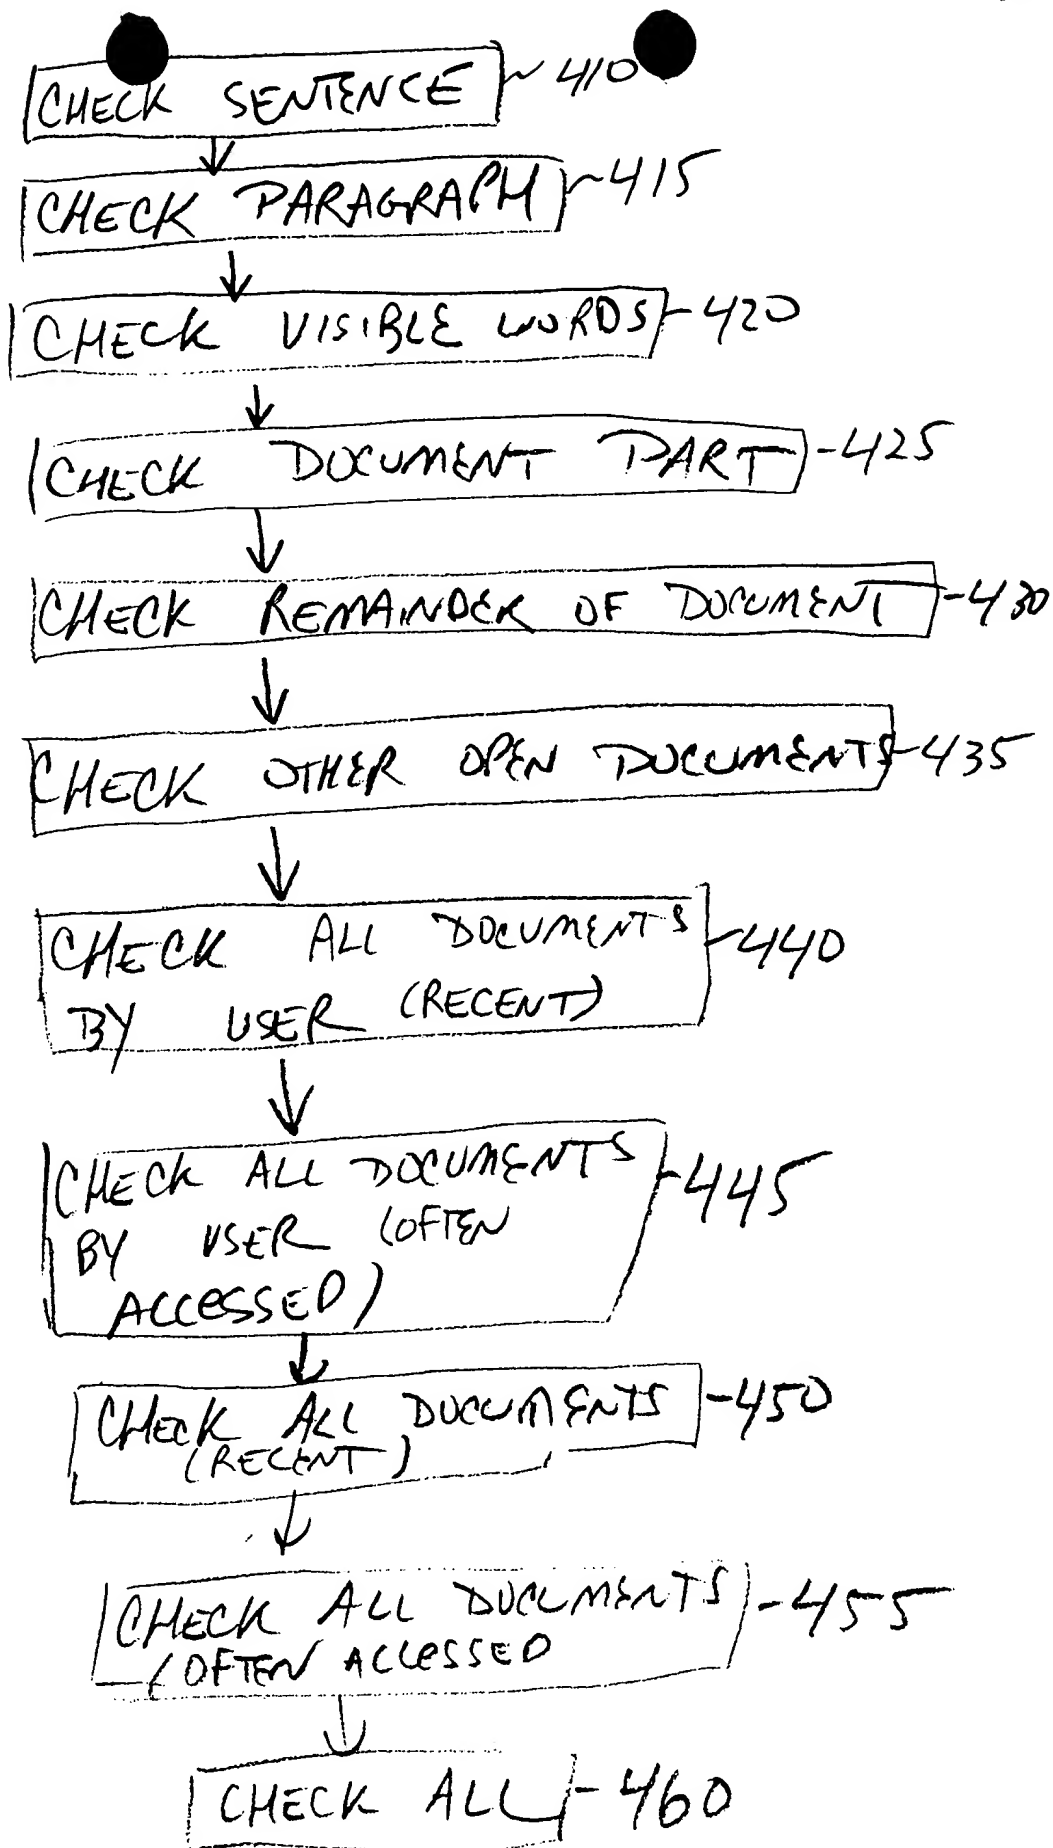 CHECK SENTENCE 410
CHECK PARAGRAPH 415
CHECK VISIBLE WORDS 420
CHECK DOCUMENT PART 425
CHECK REMAINDER OF DOCUMENT 430
CHECK OTHER OPEN DOCUMENTS 435
CHECK ALL DOCUMENTS 440
BY USER (RECENT)
CHECK ALL DOCUMENTS 445
BY USER (OFTEN
ACCESSED)
CHECK ALL DOCUMENTS 450
(RECENT)
CHECK ALL DOCUMENTS 455
(OFTEN ACCESSED
CHECK ALL 460